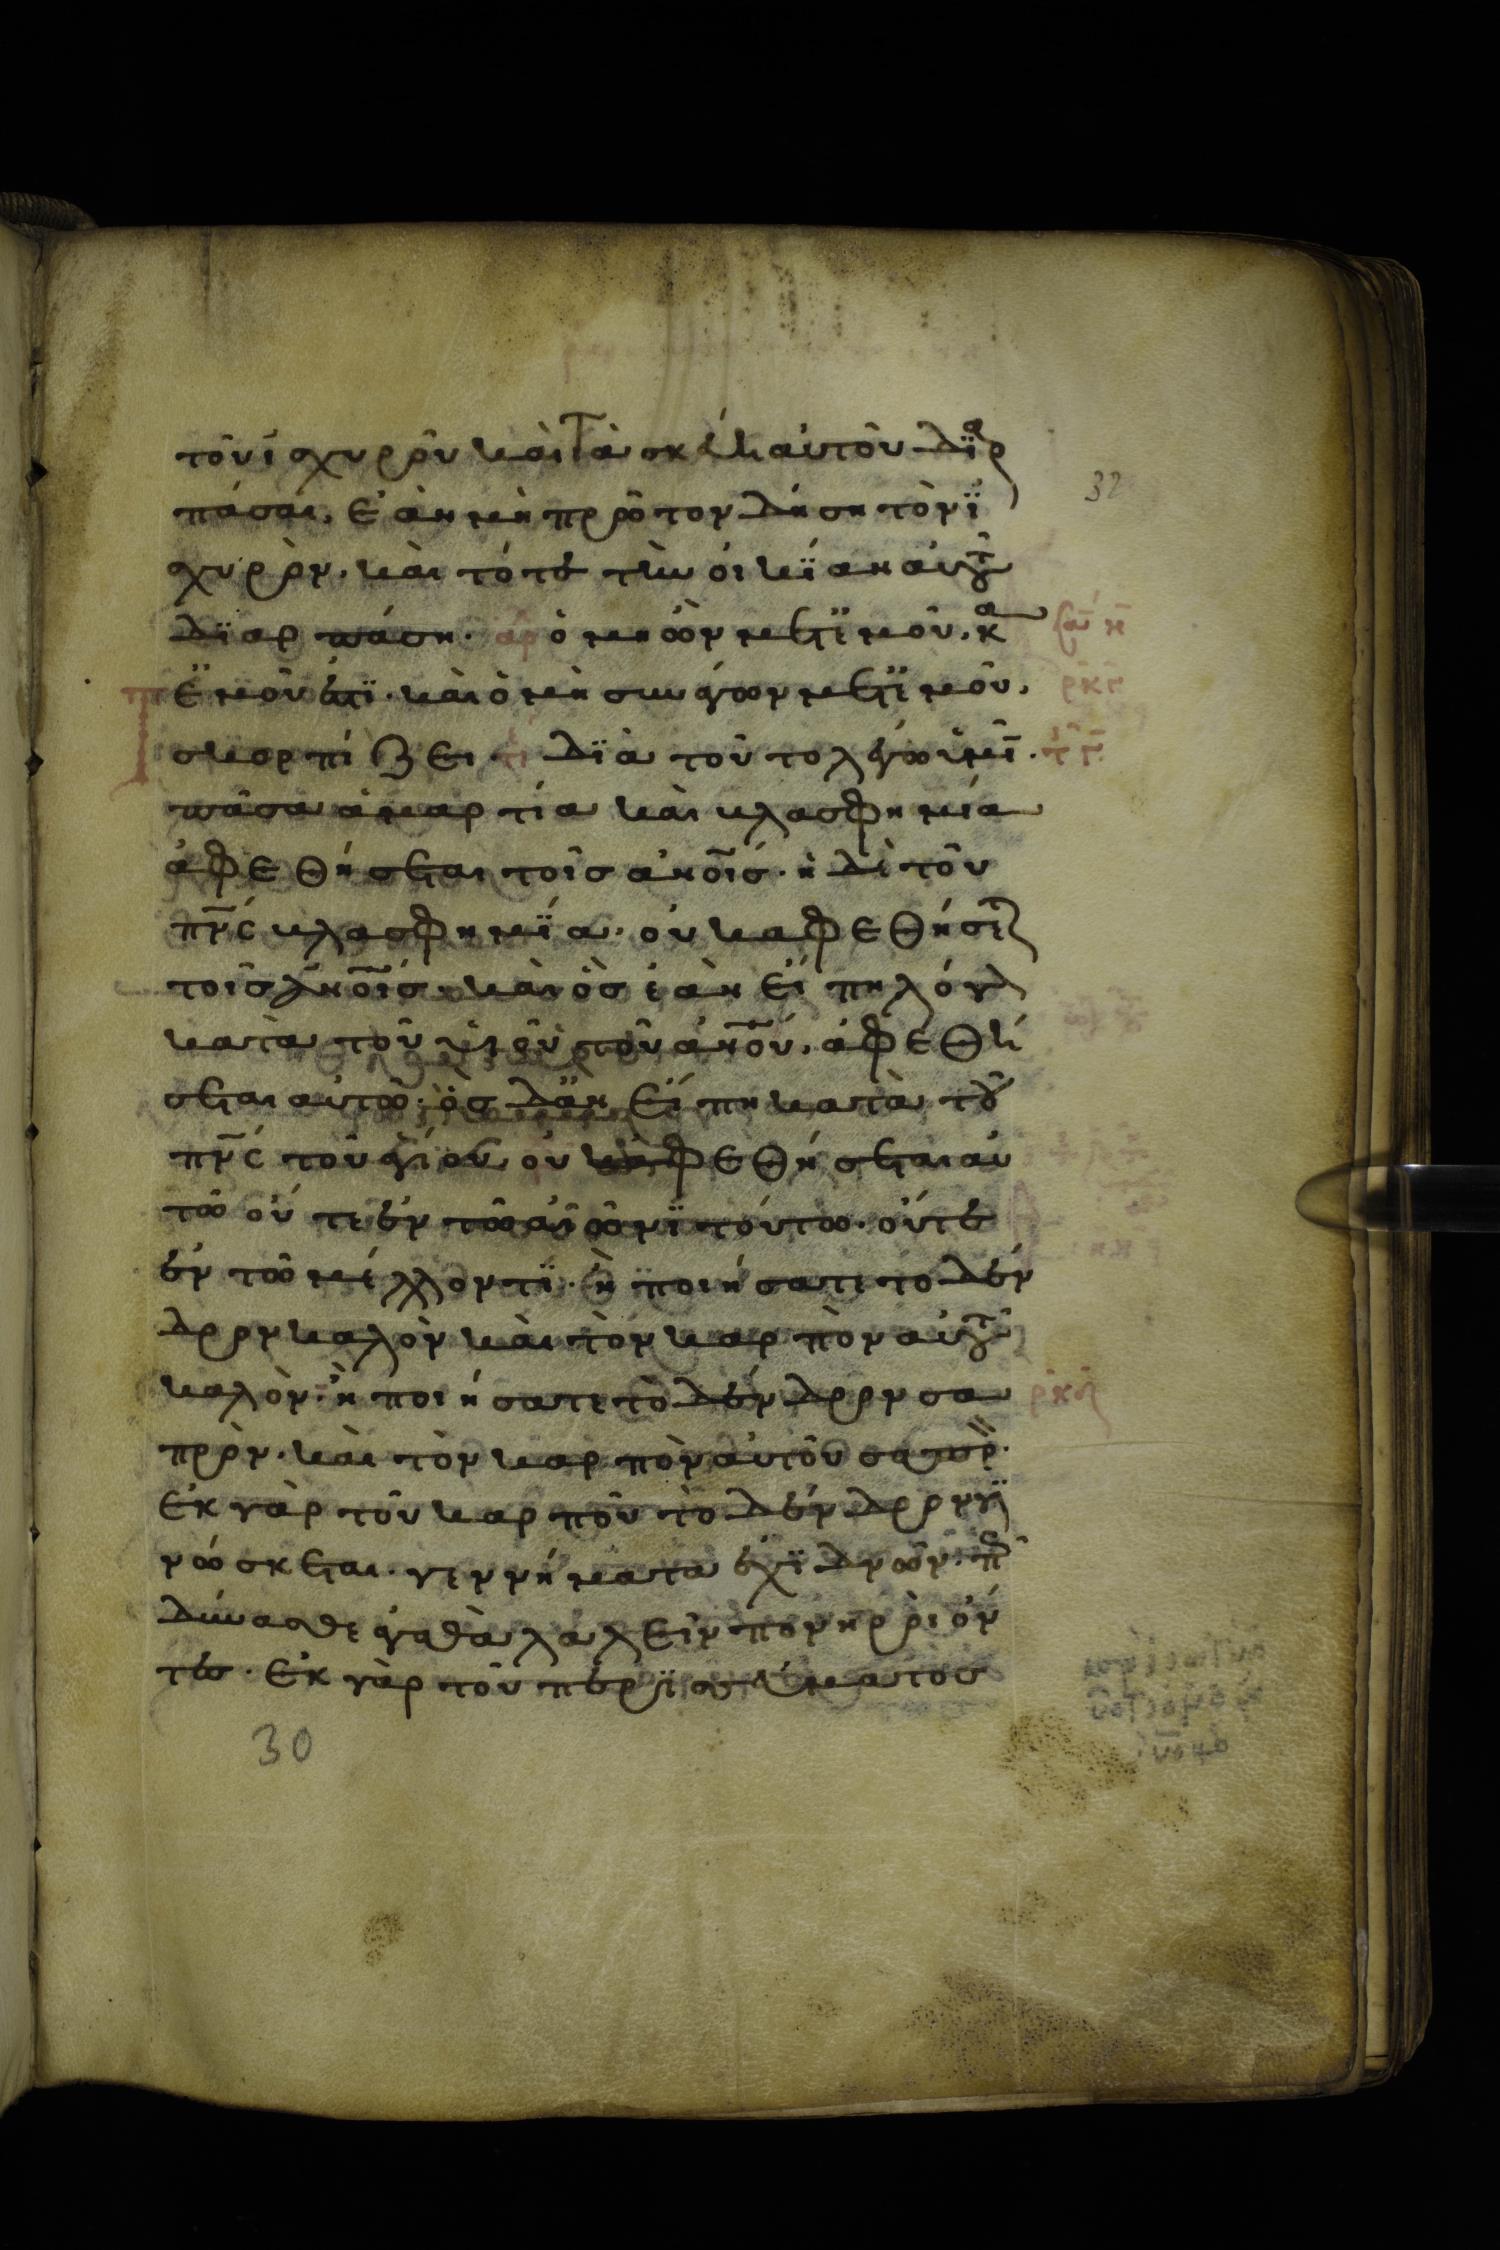 τοῦ ἰσχυροῦ καὶ τὰ σκέυη αὐτοῦ διαρ
32
πάσαι, ἐὰν μὴ πρῶτον δήση τὸν ἰ
χυρὸν. καὶ τότε τὴν οἰκΐαν αὐτοῦ
δϊαρπάση. ἀρ ὁ μὴ ὢν μετ ἐμοῦ, κα
τ ἐμοῦ ἐστϊ. καὶ ὁ μὴ συνάγων μετ ἐμοῦ,
ρκ
σκορπίζει. τέ δϊὰ τοῦτο λέγω ὑμῖ.
πᾶσα ἁμαρτία καὶ βλασφημία
ἀφεθήσεται τοῖς ἀν̅οις. ἡ δὲ τοῦ
πν̅ς βλασφημΐα. οὐκ ἀφεθήσετ
τοῖς ἀν̅οις. καὶ ὃς ἐὰν εἴπη λόγον
κατὰ τοῦ υἱοῦ τοῦ ἀν̅ου, ἀφεθή
σεται αὐτῶ. ὃς δ̈ἂν εἴπη κατὰ τοῦ
πν̅ς τοῦ ἁγίου οὐκ ἀφεθήσεται αὐ
τῶ οὔτε ἐν τῶ αἰῶνϊ τούτω. οὔτε
ἐν τῶ μέλλοντϊ. ἢ ποιήσατε το δέν
δρον καλὸν καὶ τὸν καρπὸν αὐτοῦ
καλὸν. ἢ ποιήσατε τὸ δένδρον σα
πρὸν. καὶ τὸν καρπὸν αὐτοῦ σαπρὸ.
ἐκ γὰρ τοῦ καρποῦ τὸ δένδρον γϊ
νώσκεται. γεννήματα ἐχϊδνῶν. πῶ
δύνασθε ἀγαθὰ λαλεῖν πονηροὶ ὄν
τες. ἐκ γὰρ τοῦ περϊσσέυματος
30